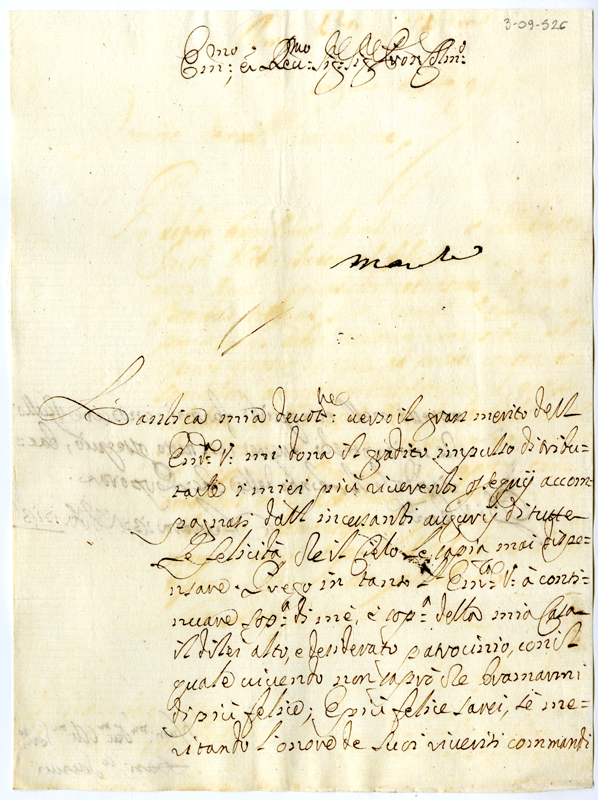 3-09-526
Em:mo è Reu:mo Sig:re Sig:re Pron Col:mo
L'antica mia deuot:ne uerso il gran merito dell
Em:za V: mi dona il gradito impulso di tribu=
tarle i miei più riuerenti osseguij accom=
pagnati dall incessanti augurij di tutte
le felicità che il Cielo le sapia mai dispe=
nsare. Prego in tanto l'Em:za V: à conti=
nuare sop:a di mè, e sop:a della mia Casa
il di lei alto, e desiderato patrocinio, con il
quale uiuendo non saprò che bramarmi
di più felice; E più felice sarei, sè me=
ritando l'onore de suoi riueriti commandi